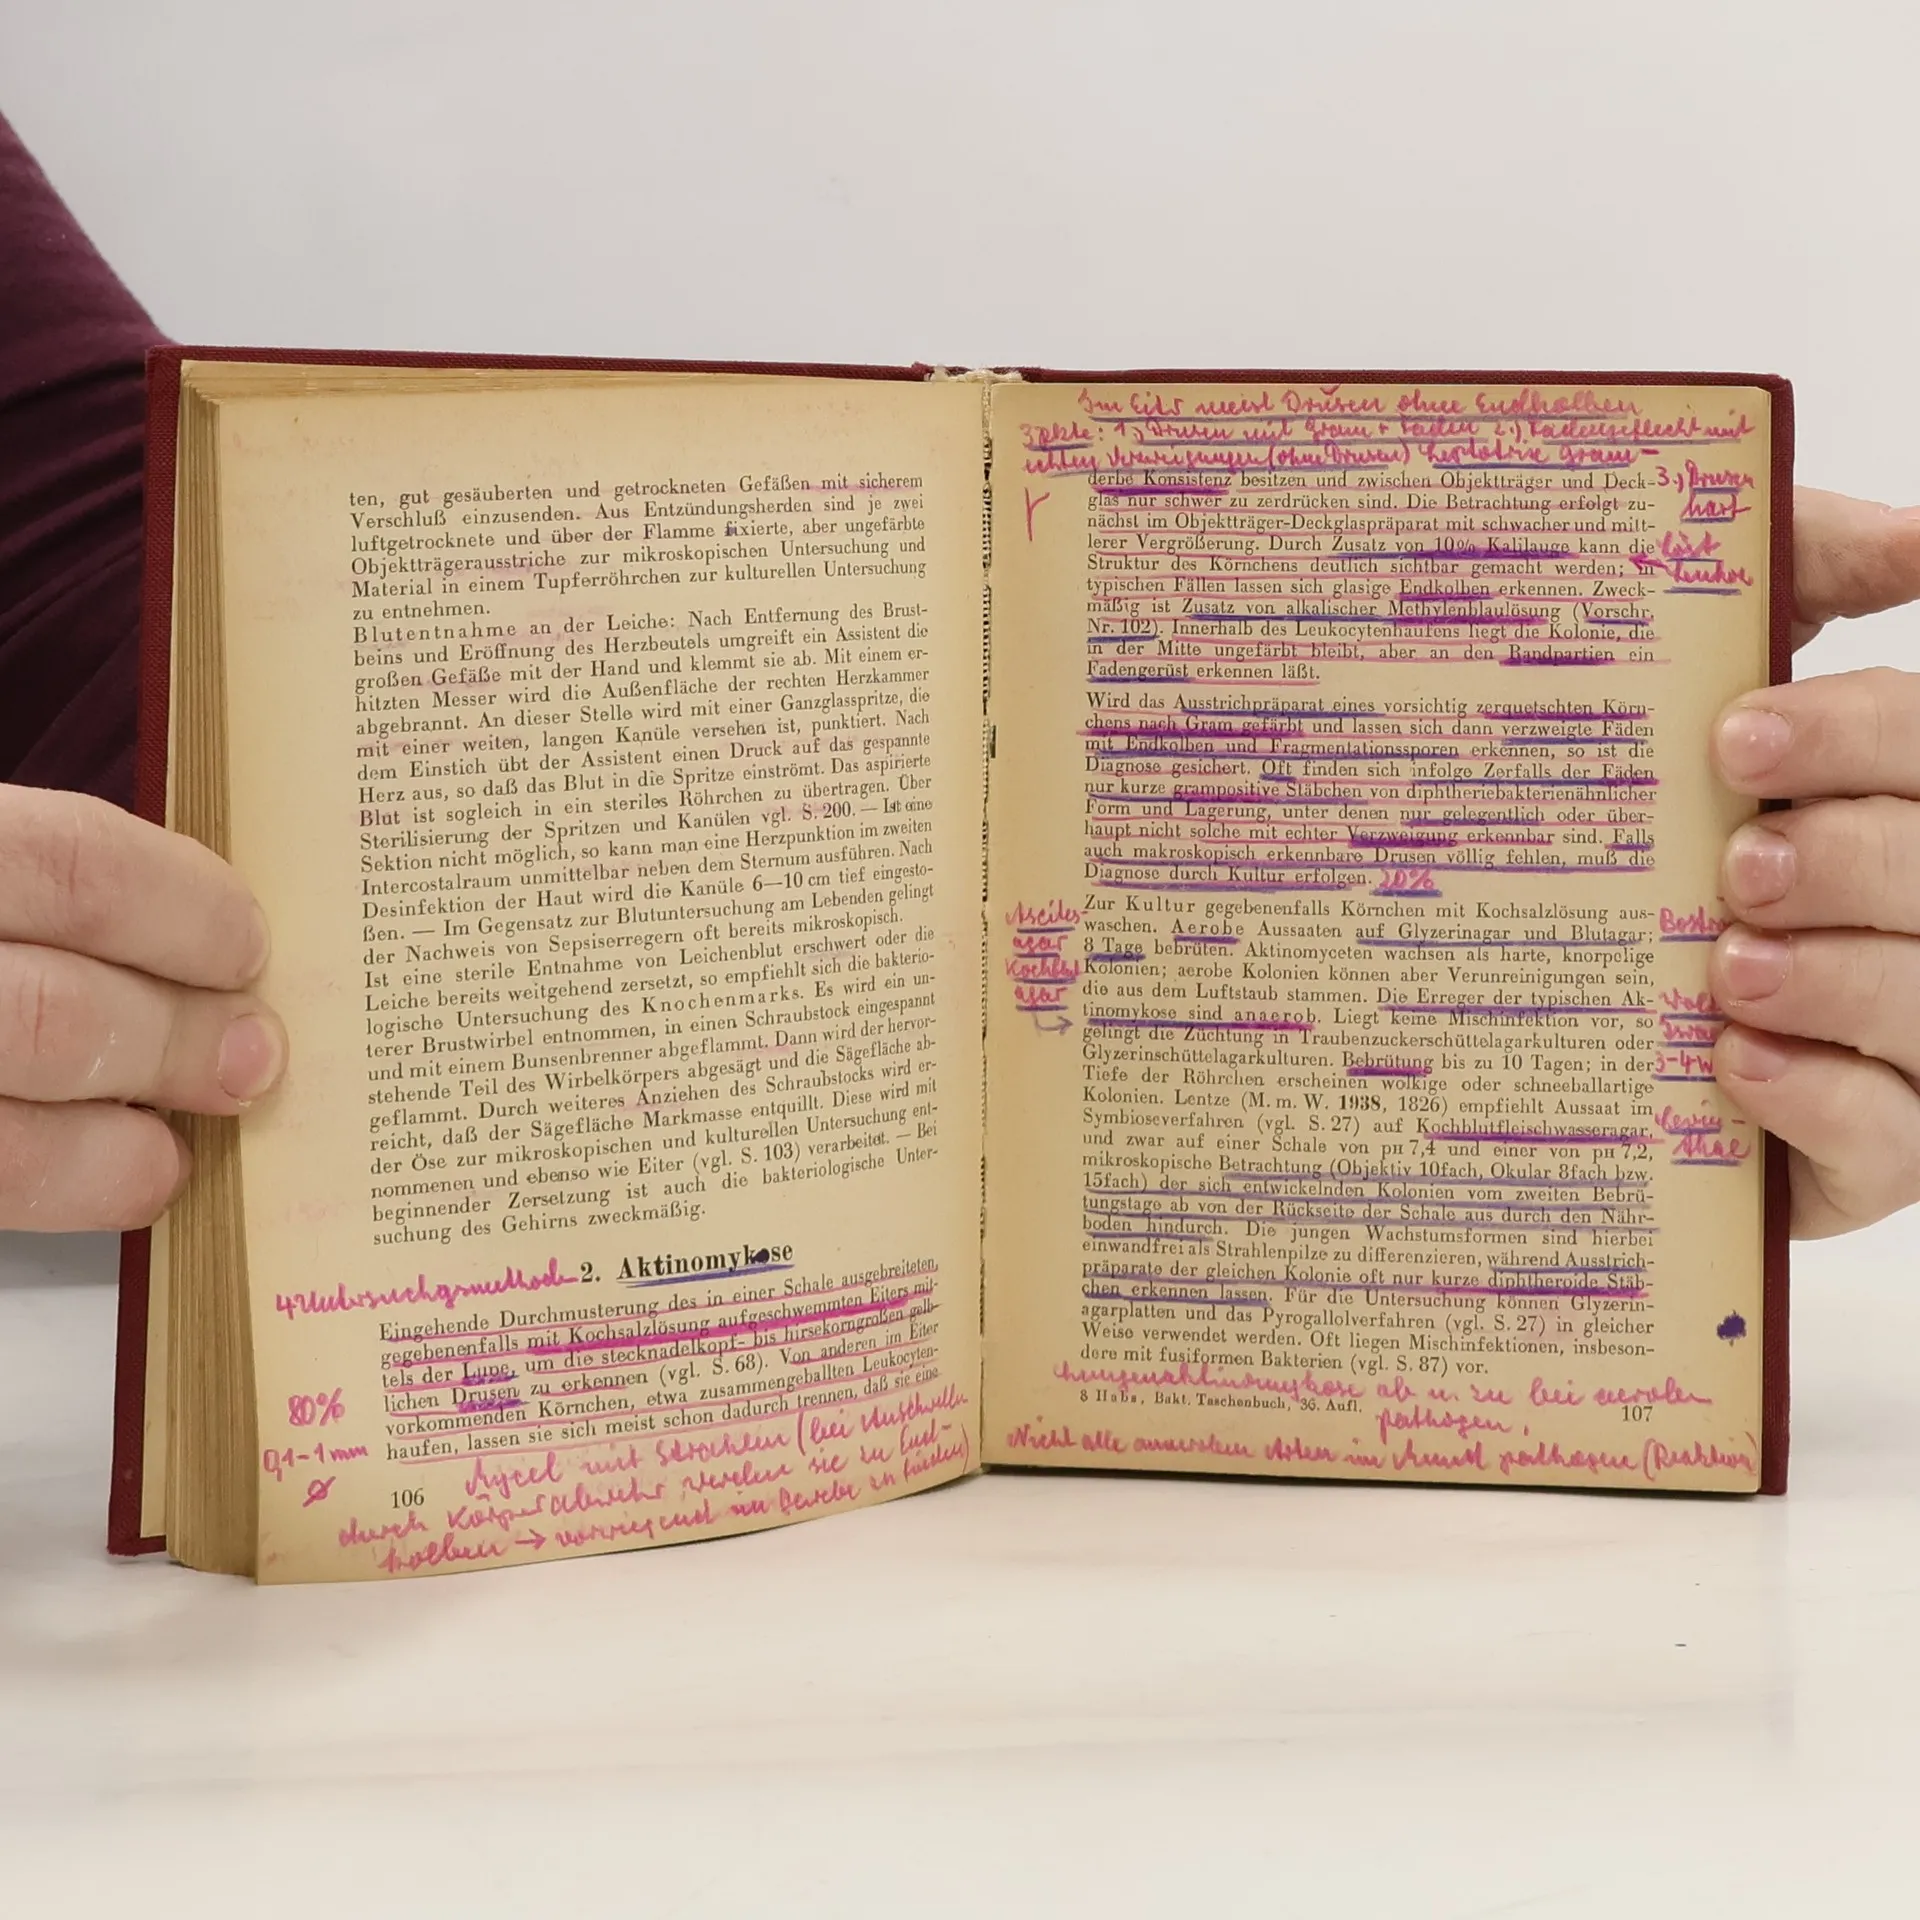 ten, gut gesäuberten und getrockneten Gefäßen mit sicherem
Verschluß einzusenden. Aus Entzündungsherden sind je zwei
luftgetrocknete und über der Flamme fixierte, aber ungefärbte
Objektträgerausstriche zur mikroskopischen Untersuchung und
Material in einem Tupferröhrchen zur kulturellen Untersuchung
zu entnehmen.
Blutentnahme an der Leiche: Nach Entfernung des Brust-
beins und Eröffnung des Herzbeutels umgreift ein Assistent die
großen Gefäße mit der Hand und klemmt sie ab. Mit einem er-
hitzten Messer wird die Außenfläche der rechten Herzkammer
abgebrannt. An dieser Stelle wird mit einer Ganzglasspritze, die
mit einer weiten, langen Kanüle versehen ist, punktiert. Nach
dem Einstich übt der Assistent einen Druck auf das gespannte
Herz aus, so daß das Blut in die Spritze einströmt. Das aspirierte
Blut ist sogleich in ein steriles Röhrchen zu übertragen. Über
Sterilisierung der Spritzen und Kanülen vgl. S. 200. — Ist eine
Sektion nicht möglich, so kann man eine Herzpunktion im zweiten
Intercostalraum unmittelbar neben dem Sternum ausführen. Nach
Desinfektion der Haut wird die Kanüle 6—10 cm tief eingesto-
ßen. — Im Gegensatz zur Blutuntersuchung am Lebenden gelingt
der Nachweis von Sepsiserregern oft bereits mikroskopisch.
Ist eine sterile Entnahme von Leichenblut erschwert oder die
Leiche bereits weitgehend zersetzt, so empfiehlt sich die bakterio-
logische Untersuchung des Knochenmarks. Es wird ein un-
terer Brustwirbel entnommen, in einen Schraubstock eingespannt
und mit einem Bunsenbrenner abgeflammt. Dann wird der hervor-
stehende Teil des Wirbelkörpers abgesägt und die Sägefläche ab-
geflammt. Durch weiteres Anziehen des Schraubstocks wird er-
reicht, daß der Sägefläche Markmasse entquillt. Diese wird mit
der Öse zur mikroskopischen und kulturellen Untersuchung ent-
nommenen und ebenso wie Eiter (vgl. S. 103) verarbeitet. — Bei
beginnender Zersetzung ist auch die bakteriologische Unter-
suchung des Gehirns zweckmäßig.
4 Untersuchgsmethode 2. Aktinomykose
Eingehende Durchmusterung des in einer Schale ausgebreiteten,
gegebenenfalls mit Kochsalzlösung aufgeschwemmten Eiters mit-
tels der Lupe, um die stecknadelkopf- bis hirsekorngroßen gelb-
lichen Drusen zu erkennen (vgl. S. 68). Von anderen im Eiter
80% vorkommenden Körnchen, etwa zusammengeballten Leukocyten-
haufen, lassen sie sich meist schon dadurch trennen, daß sie eine
0,1-1 mm
ø
Mycel mit Strahlen (bei Anschwellen
durch Körperabwehr werden sie zu End-
kolben → vorwiegend im Gewebe zu finden)
106
Im Eiter meist Drusen ohne Endkolben
3 Pkte: 1.) Drusen mit Gram + Fäden 2.) Fadengeflecht mit
echten Verzweigungen (ohne Drusen) Leptotrix Gram-
3.) Drusen
hart
derbe Konsistenz besitzen und zwischen Objektträger und Deck-
glas nur schwer zu zerdrücken sind. Die Betrachtung erfolgt zu-
nächst im Objektträger-Deckglaspräparat mit schwacher und mitt-
lerer Vergrößerung. Durch Zusatz von 10% Kalilauge kann die
Struktur des Körnchens deutlich sichtbar gemacht werden; in
typischen Fällen lassen sich glasige Endkolben erkennen. Zweck-
mäßig ist Zusatz von alkalischer Methylenblaulösung (Vorschr.
Nr. 102). Innerhalb des Leukocytenhaufens liegt die Kolonie, die
in der Mitte ungefärbt bleibt, aber an den Randpartien ein
Fadengerüst erkennen läßt.
löst
Leukoc
Wird das Ausstrichpräparat eines vorsichtig zerquetschten Körn-
chens nach Gram gefärbt und lassen sich dann verzweigte Fäden
mit Endkolben und Fragmentationssporen erkennen, so ist die
Diagnose gesichert. Oft finden sich infolge Zerfalls der Fäden
nur kurze grampositive Stäbchen von diphtheriebakterienähnlicher
Form und Lagerung, unter denen nur gelegentlich oder über-
haupt nicht solche mit echter Verzweigung erkennbar sind. Falls
auch makroskopisch erkennbare Drusen völlig fehlen, muß die
Diagnose durch Kultur erfolgen. 20%
Ascites-
agar
Kochblut
agar
Zur Kultur gegebenenfalls Körnchen mit Kochsalzlösung aus-
waschen. Aerobe Aussaaten auf Glyzerinagar und Blutagar;
8 Tage bebrüten. Aktinomyceten wachsen als harte, knorpelige
Kolonien; aerobe Kolonien können aber Verunreinigungen sein,
die aus dem Luftstaub stammen. Die Erreger der typischen Ak-
tinomykose sind anaerob. Liegt keine Mischinfektion vor, so
gelingt die Züchtung in Traubenzuckerschüttelagarkulturen oder
Glyzerinschüttelagarkulturen. Bebrütung bis zu 10 Tagen; in der
Tiefe der Röhrchen erscheinen wolkige oder schneeballartige
Kolonien. Lentze (M. m. W. 1938, 1826) empfiehlt Aussaat im
Symbioseverfahren (vgl. S. 27) auf Kochblutfleischwasseragar,
und zwar auf einer Schale von pH 7,4 und einer von pH 7,2,
mikroskopische Betrachtung (Objektiv 10fach, Okular 8fach bzw.
15fach) der sich entwickelnden Kolonien vom zweiten Bebrü-
tungstage ab von der Rückseite der Schale aus durch den Nähr-
boden hindurch. Die jungen Wachstumsformen sind hierbei
einwandfrei als Strahlenpilze zu differenzieren, während Ausstrich-
präparate der gleichen Kolonie oft nur kurze diphtheroide Stäb-
chen erkennen lassen. Für die Untersuchung können Glyzerin-
agarplatten und das Pyrogallolverfahren (vgl. S. 27) in gleicher
Weise verwendet werden. Oft liegen Mischinfektionen, insbeson-
dere mit fusiformen Bakterien (vgl. S. 87) vor.
3-4 W
Levin-
thal
Lungenaktinomykose ab u. zu bei aeroben
pathogen,
8 Habs, Bakt. Taschenbuch, 36. Aufl.
107
Nicht alle anaeroben Arten im Mund pathogen (Reaktion)